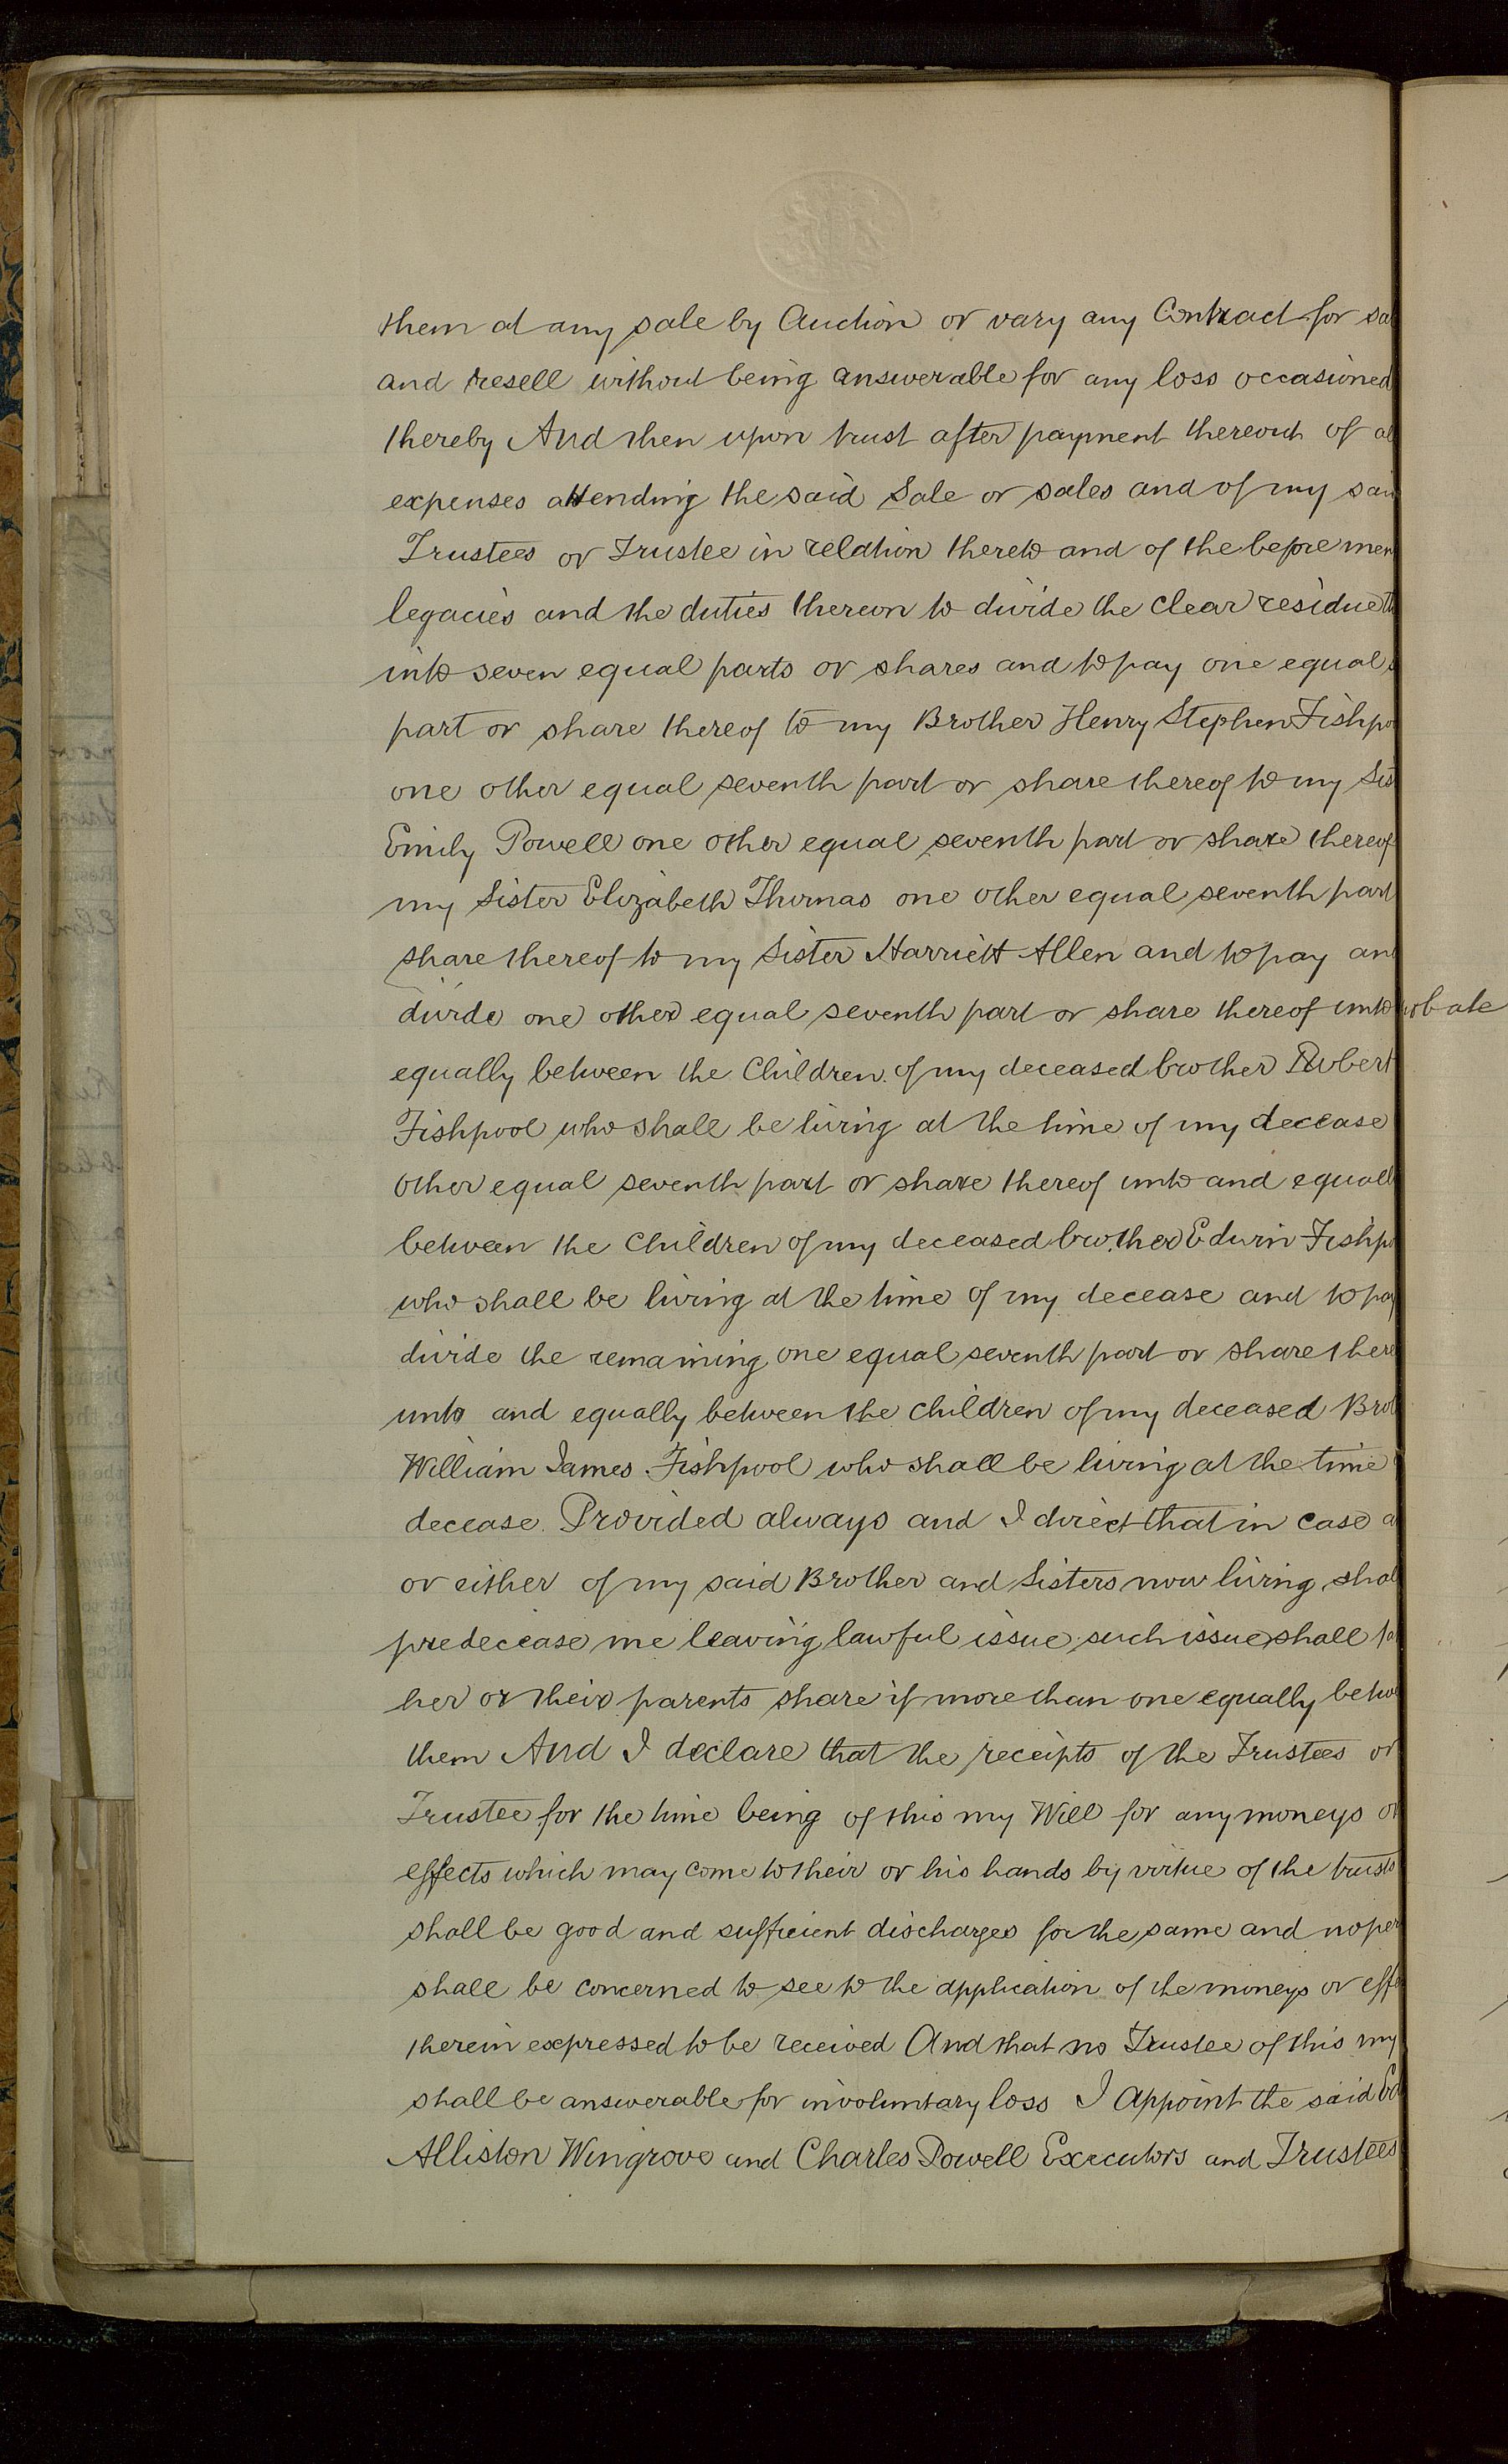 them at any sale by Auction or vary any Contract for sa
and resell without being answerable for any loss occasioned
thereby And then upon trust after payment thereout of al
expenses attending the said Sale or sales and of my sai
Trustees or Trustee in relation thereto and of the before men
legacies and the duties thereon to divide the clear residue th
into seven equal parts or shares and to pay one equal s
part or share thereof to my Brother Henry Stephen Fishpo
one other equal seventh part or share thereof to my Sis
Emily Powell one other equal seventh part or share thereof
my Sister Elizabeth Thomas one other equal seventh part
share thereof to my Sister Harriett Allen and to pay an
divide one other equal seventh part or share thereof unto
obate
equally between the Children of my deceased brother Robert
Fishpool who shall be living at the time of my decease
other equal seventh part or share thereof unto and equall
between the Children of my deceased brother Edwin Fishpo
who shall be living at the time of my decease and to pay
divide the remaining one equal seventh part or share there
unto and equally between the children of my deceased Brot
William James Fishpool who shall be living at the time
decease. Provided always and I direct that in case a
or either of my said Brother and Sisters now living shal
predecease me leaving lawful issue such issue shall ta
her or their parents share if more than one equally betwe
them And I declare that the receipts of the Trustees or
Trustee for the time being of this my Will for any moneys or
effects which may come to their or his hands by virtue of the trusts
shall be good and sufficient discharges for the same and no per
shall be concerned to see to the application of the moneys or effe
therein expressed to be received And that no Trustee of this my
shall be answerable for involuntary loss I appoint the said Ed
Alliston Wingrove and Charles Powell Executors and Trustees